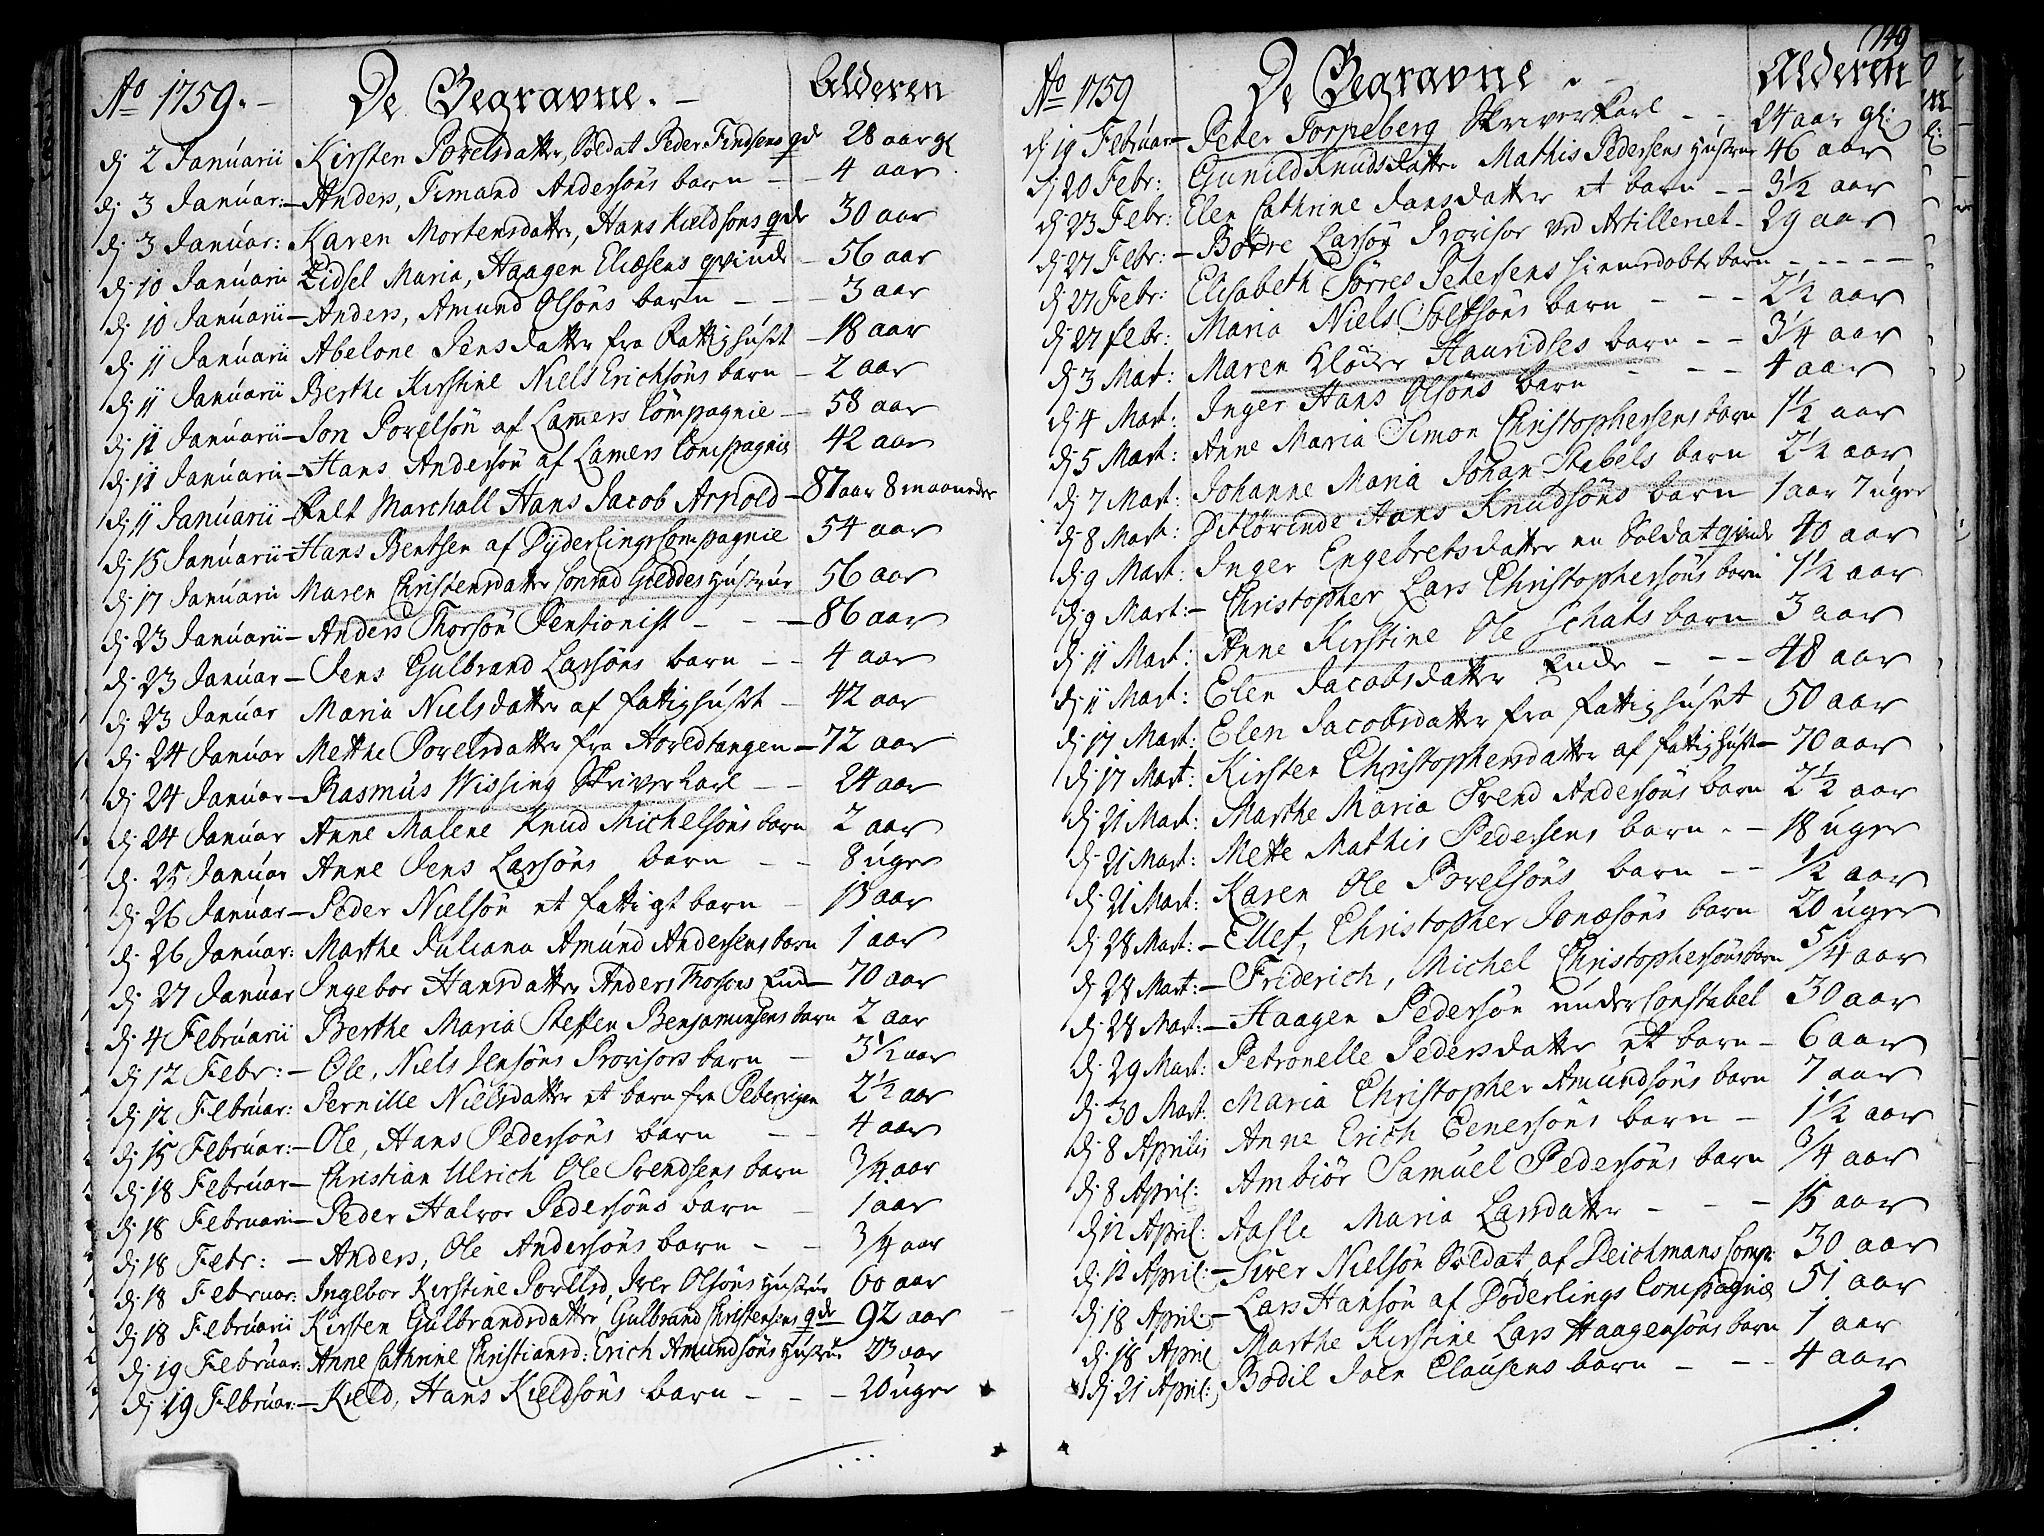 Ao 1759. De Begravne. Alderen
dj 2 Januarii Kirsten Povelsdatter, Soldat Peder Findsens qde 28 aar gl
dj 3 Januar: Anders, Simand Andersöns barn 4 aar
dj 3 Januar: Karen Mortensdatter, Hans Kieldsöns qde 30 aar
dj 10 Januarii Zidsel Maria, Haagen Eliæsens qvinde 56 aar
dj 10 Januarii Anders, Amund Olsöns barn 3 aar
dj 11 Januarii Abelone Jensdatter fra Fattighuset 18 aar
dj 11 Januarii Berthe Kirstine Niels Erichsöns barn 2 aar
dj 11 Januarii Jon Povelsön af Lamers Compagnie 58 aar
dj 11 Januarii Hans Andersön af Lamers Compagnie 42 aar
dj 11 Januarii Felt Marchall Hans Jacob Arnold 87 aar 8 maaneder
dj 15 Januarii Hans Bentsen af Dyderlings Compagnie 54 aar
dj 17 Januarii Maren Christensdatter Conrad Gieddes Hustrue 56 aar
dj 23 Januarii Anders Thorsön Pentionist 86 aar
dj 23 Januar Jens Gulbrand Larsöns barn 4 aar
dj 23 Januar Maria Nielsdatter af fattighuset 42 aar
dj 24 Januar Mette Povelsdatter fra Hovedtangen 72 aar
dj 24 Januar Rasmus Wissing Skriverkarl 24 aar
dj 24 Januar Anne Malene Knud Michelsöns barn 2 aar
dj 25 Januar Anne Jens Larsöns barn 8 uger
dj 26 Januar Peder Nielsön et fattigt barn 13 aar
dj 26 Januar: Marthe Juliana Amund Andersens barn 1 aar
dj 27 Januar Ingebor Hansdatter Anders Thosöns Enke 70 aar
dj 4 Februarii Berthe Maria Steffen Benjaminsens barn 2 aar
dj 12 Febr: Ole, Niels Jensöns Provisors barn 3½ aar
dj 12 Februar: Pernille Nielsdatter et barn fra Pedervigen 2½ aar
dj 15 Februar: Ole, Hans Pedersöns barn 4 aar
dj 18 Februar Christian Ulrich Ole Svendsens barn 3/4 aar
dj 18 Februarii Peder Halvor Pedersöns barn 1 aar
dj 18 Febr: Anders, Ole Andersöns barn 3/4 aar
dj 18 Februar: Ingebor Kirstine Povelsd, Iver Olsöns Hustrue 60 aar
dj 18 Februarii Kirsten Gulbrandsdatter, Gulbrand Christensens qde 92 aar
dj 19 Februar: Anne Cathrine Christiansd: Erich Amundsöns Hustrue 23 aar
dj 19 Februar: Kield, Hans Kieldsöns barn 20 uger
149
Ao 1759 De Begravne. Alderen
dj 19 Februar Peter Torpeberg Skriverkarl 24 aar gl:
dj 20 Febr: Gunild Knudsdatter Mathis Pedersens Hustrue 46 aar
dj 23 Febr: Elen Cathrine Jansdatter et barn 3½ aar
dj 27 Febr: Börre Larsön Provisor ved Artilleriet 29 aar
dj 27 Febr: Elisabeth Törres Petersens hiemedöbte barn
dj 27 febr: Maria Niels Soltsöns barn 2½ aar
dj 3 Mart: Maren Klöver Hauridses barn 3¼ aar
dj 4 Mart: Inger Hans Olsöns barn 4 aar
dj 5 Mart: Anne Maria Simon Christophersens barn 1½ aar
dj 7 Mart: Johanne Maria Johan Stabels barn 2½ aar
dj 8 Mart: Ditlövinde Hans Knudsöns barn 1 aar 7 uger
dj 9 Mart: Inger Engebretsdatter en Soldatqvinde 40 aar
dj 9 Mart: Christopher Lars Christophersöns barn 1½ aar
dj 11 Mart: Anne Kirstine Ole Schaks barn 3 aar
dj 11 Mart: Elen Jacobsdatter Enke 48 aar
dj 17 Mart: Elen Jacobsdatter fra fattighuset 50 aar
dj 17 Mart: Kirsten Christophersdatter af fattighuset 70 aar
dj 21 Mart: Marthe Maria Svend Andersöns barn 2½ aar
dj 21 Mart: Mette Mathis Pedersens barn 18 uger
dj 21 Mart: Karen Ole Povelsöns barn ½ aar
dj 28 Mart: Ellef, Christopher Jonæsöns barn 20 uger
dj 28 Mart: Friderich, Michel Christophersöns barn 5/4 aar
dj 28 Mart: Haagen Pedersön underConstabel 30 aar
dj 29 Mart: Petronelle Pedersdatter et barn 6 aar
dj 30 Mart: Maria Christopher Amundsöns barn 7 aar
dj 8 Aprilii Anne Erich Eenersöns barn 1½ aar
dj 8 April: Ambiör Samuel Pedersöns barn 3/4 aar
dj 12 April: Aasle Maria Larsdatter 15 aar
dj 13 April: Siver Nielsön Soldat af Deichmans Comp: 30 aar
dj 18 April: Lars Hansön af Döderlings Compagnie 51 aar
dj 18 April Marthe Kirstine Lars Haagensöns barn 1 aar
dj 21 April: Bodil Joen Clausens barn 4 aar